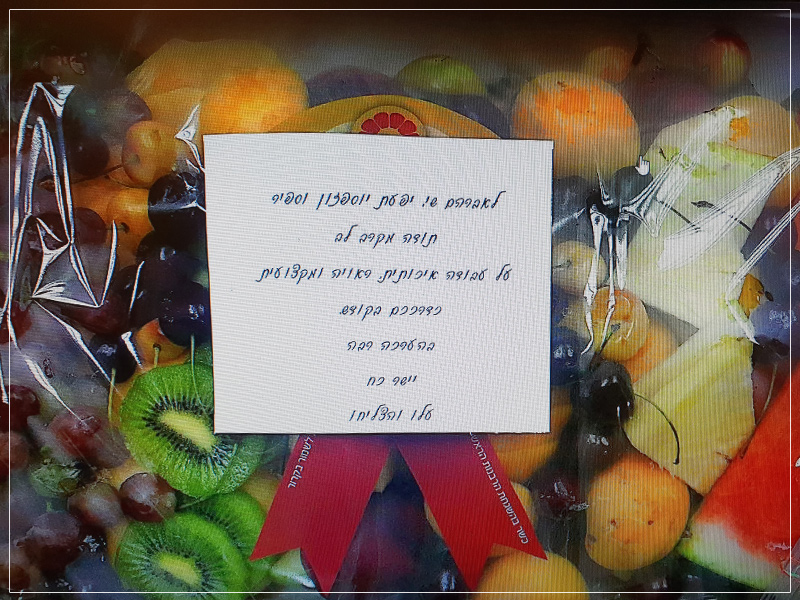 לאברהם שי יפעת יוספזון וספיר
תודה מקרב לב
על עבודה איכותית ראויה ומקצועית
כדרככם בקודש
בהערכה רבה
יישר כח
עלו והצליחו
לשמור בקרור
כשר בהשגחת הרבנות הראשית